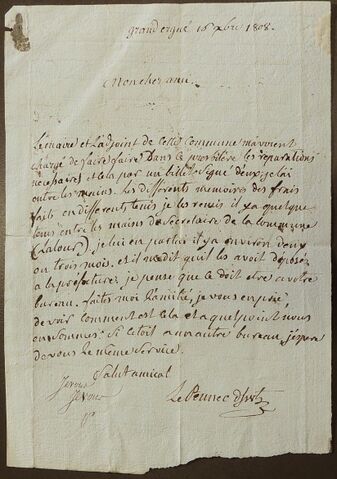 grand ergué 16 xbre 1808.
Mon cher ami.
Le maire et l'adjoint de cette Commune m'avoient
chargé de faire faire dans le presbitère les reparations
nécessaires et cela par un billet d'eux que j'ai
entre les mains. Les differents memoires des frais
faits en differents tems je les remis il y a quelque
tems entre les mains du Secretaire de la commune
(Latour) je lui en parlai il y a environ deux
ou trois mois. et il me dit qu'il les avoit déposés
a la prefecture. je pense que ce doit etre a votre
bureau. faites moi l'amitié, je vous en prie,
de voir comment est cela et a quel point nous
en sommes. Si c'etoit a un autre bureau, j'espere
de vous le même service.
Salut amical
Le Pennec